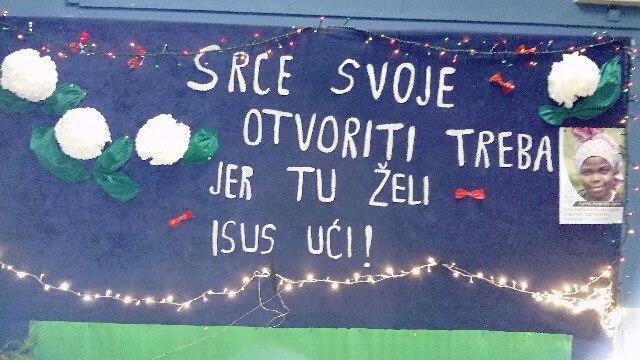 SRCE SVOJE
OTVORITI TREBA
JER TU ŽELI
ISUS UĆI!